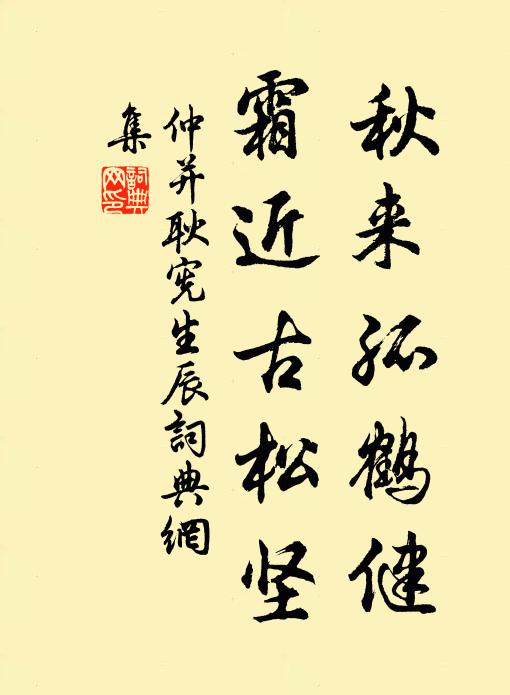 秋来孤鹤健
霜近古松坚
仲并耿宪生辰詞典網
集
詞典
网印